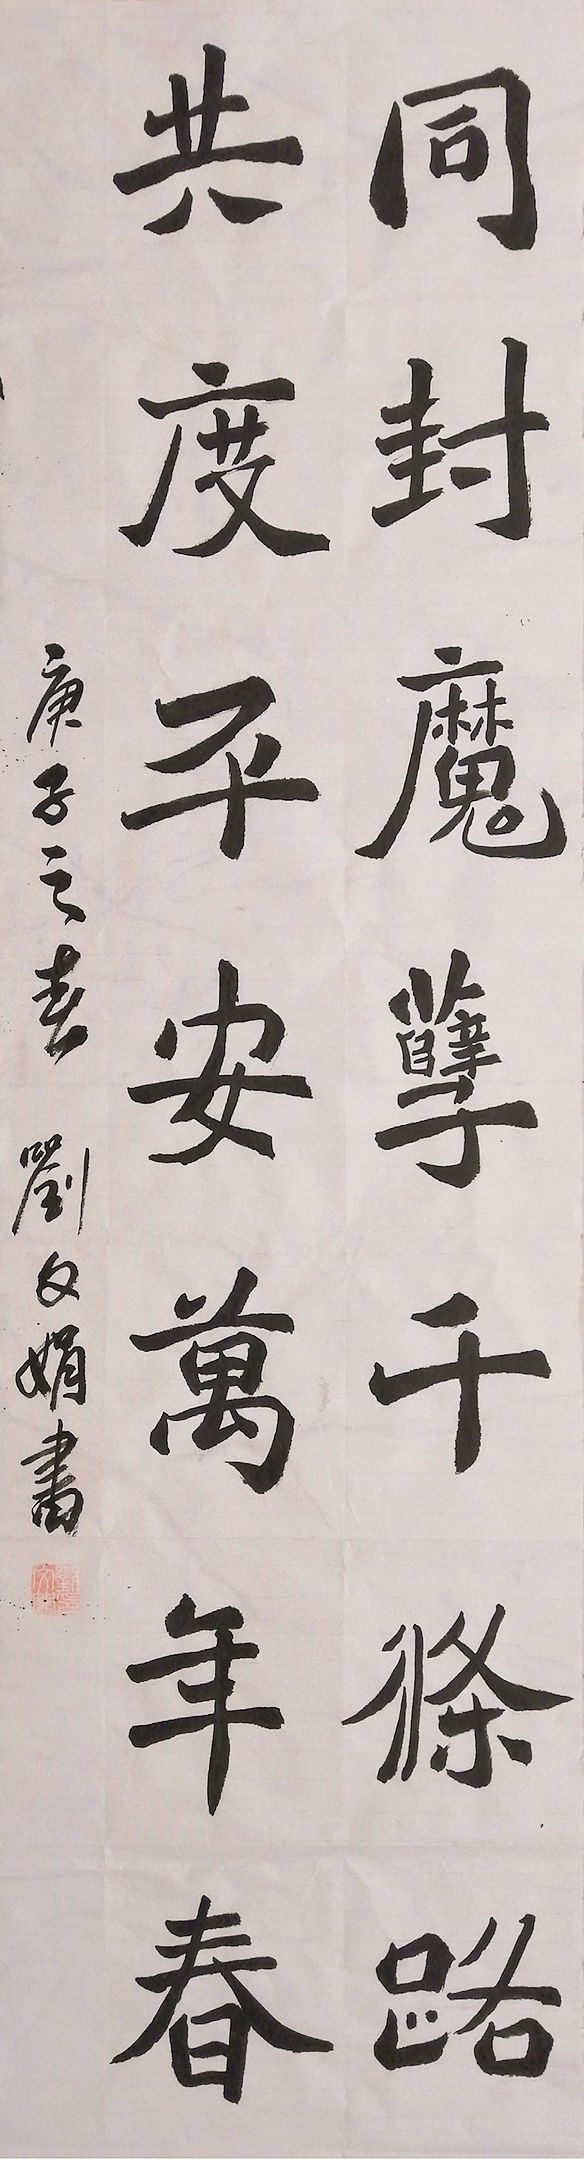 同封魔孽千條路
共度平安萬年春
庚子之春 劉文娟書